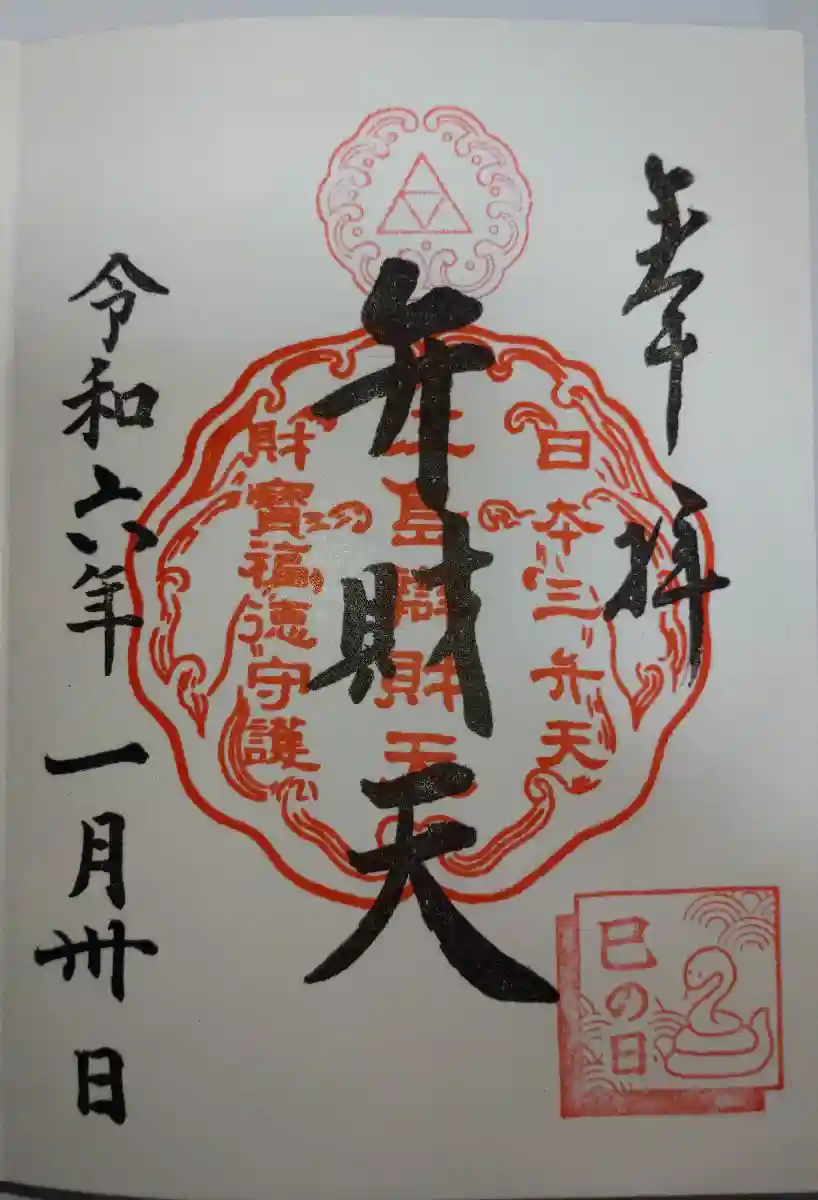 奉拝
日本三弁天
島辯財天
財寶福徳守護
弁財天
令和六年一月卅日
巳の日